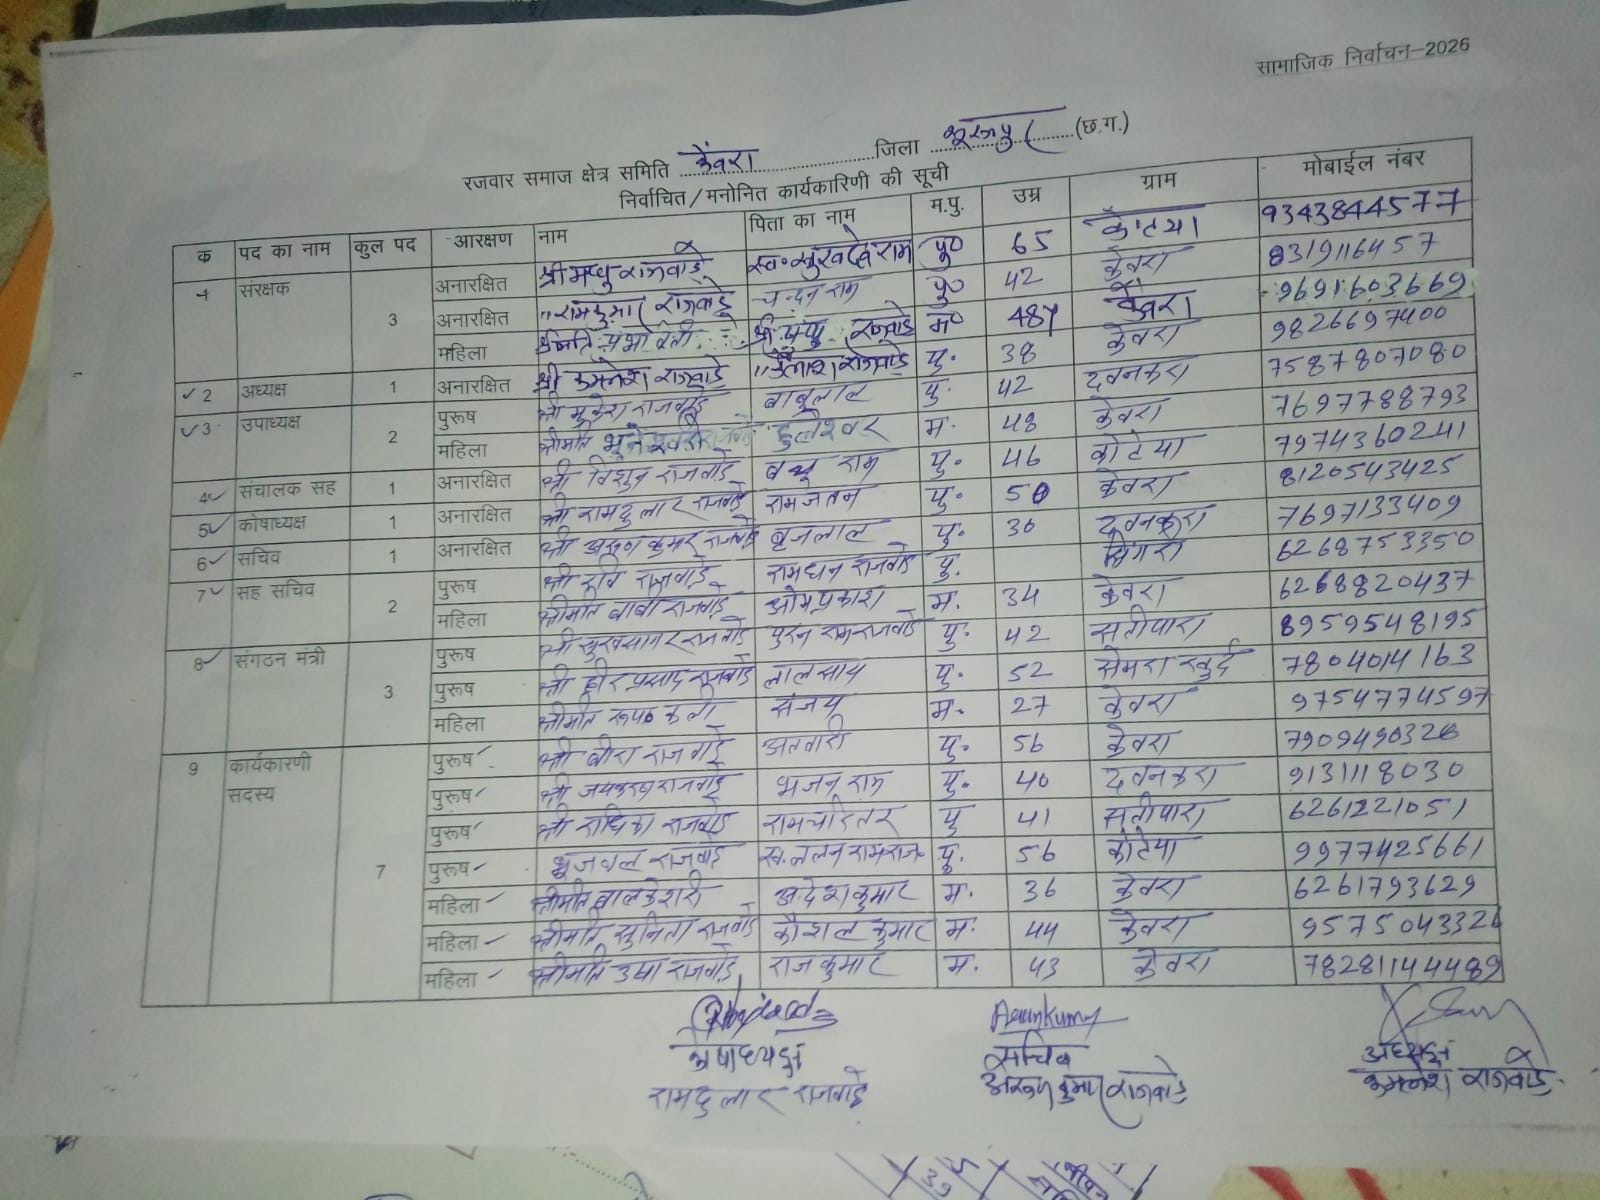 सामाजिक निर्वाचन–2026
रजवार समाज क्षेत्र समिति केंवरा जिला सूरजपुर (छ.ग.)
निर्वाचित/मनोनित कार्यकारिणी की सूची
क पद का नाम कुल पद आरक्षण नाम पिता का नाम म.पु. उम्र ग्राम मोबाईल नंबर
1 संरक्षक 3 अनारक्षित श्री मधु राजवाड़े स्व. सुखदेव राम पु० 65 कोटया 9343844577
अनारक्षित "रामकुमार राजवाड़े चन्दन राम पु० 42 केवरा 8319116457
महिला श्रीमति श्री पप्पु राजवाड़े म० 48 केवरा 9691603669
2 अध्यक्ष 1 अनारक्षित श्री कमलेश राजवाड़े "कैलाश राजवाड़े पु. 38 केवरा 9826697400
3 उपाध्यक्ष 2 पुरूष श्री मुकेश राजवाड़े बाबुलाल पु. 42 दवनकरा 7587807080
महिला श्रीमति भूनेश्वरी राजवाड़े दुलेश्वर म. 48 केवरा 7697788793
4 संचालक सह 1 अनारक्षित श्री विशुन राजवाड़े बच्चू राम पु. 46 कोटेया 7974360241
5 कोषाध्यक्ष 1 अनारक्षित श्री रामदुलार राजवाड़े रामजतन पु. 50 केवरा 8120543425
6 सचिव 1 अनारक्षित श्री अरूण कुमार राजवाड़े बृजलाल पु. 30 दवनकरा 7697133409
7 सह सचिव 2 पुरूष श्री रवि राजवाड़े रामधन राजवाड़े पु. सिंगरा 6268753350
महिला श्रीमति बाबी राजवाड़े ओमप्रकाश म. 34 केवरा 6268820437
8 संगठन मंत्री 3 पुरूष श्री सुखसागर राजवाड़े पुरन राम राजवाड़े पु. 42 सतीपारा 8959548195
पुरूष श्री हरिप्रसाद राजवाड़े लालसाय पु. 52 सेमरा खुर्द 7804014163
महिला श्रीमति रूपकली संजय म. 27 केवरा 9754774597
9 कार्यकारणी सदस्य 7 पुरूष श्री बीरा राजवाड़े अतवारी पु. 56 केवरा 7909490326
पुरूष श्री जयकरण राजवाड़े भजन राम पु. 40 दवनकरा 9131118030
पुरूष श्री राधिका राजवाड़े रामचरितर पु 41 सतीपारा 6261221051
पुरूष भुजबल राजवाड़े स्व. ललन राम राज. पु. 56 कोटेया 9977425661
महिला श्रीमति बालकेशरी आदेश कुमार म. 36 केवरा 6261793629
महिला श्रीमति सुनिता राजवाड़े कौशल कुमार म. 44 केवरा 9575043326
महिला श्रीमति उषा राजवाड़े राजकुमार म. 43 केवरा 78281144489
Arunkumar
कोषाध्यक्ष सचिव अध्यक्ष
रामदुलार राजवाड़े अरूण कुमार राजवाड़े कमलेश राजवाड़े